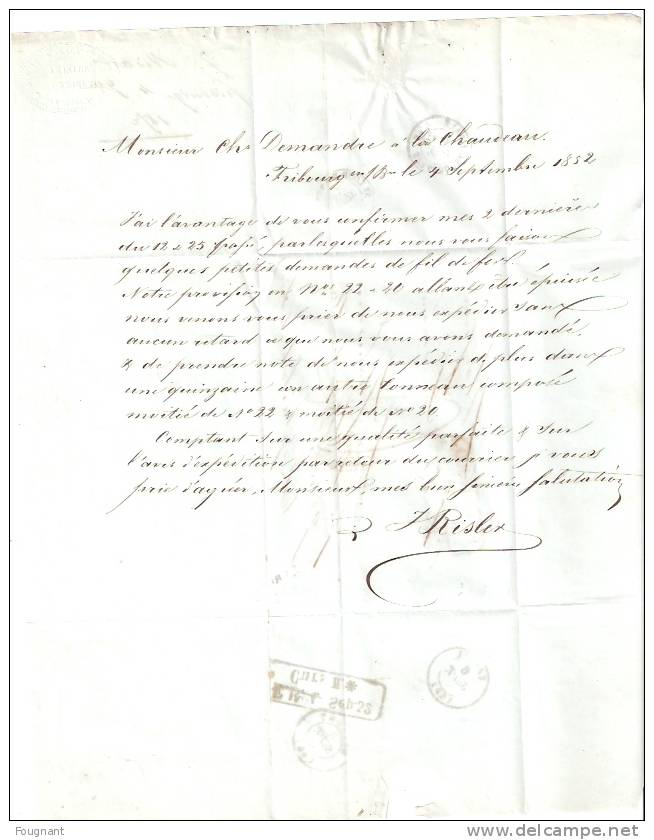 Monsieur Chs Demandre à la Chaudeau.
Fribourg en/Bau le 4 Septembre 1852
J'ai l'avantage de vous confirmer mes 2 dernières
du 12 & 25 passé, par lesquelles nous vous faisons
quelques petites demandes de fil de fer.
Notre provision en Nos 22 & 20 allant être épuisée
nous venons vous prier de nous expédier sans
aucun retard ce que nous vous avons demandé,
& de prendre note de nous expédier de plus dans
une quinzaine un autre tonneau composé
moitié de No 22 & moitié de No 20.
Comptant sur une qualité parfaite & sur
l'avis d'expédition par retour du courrier je vous
prie d'agréer, Monsieur, mes bien sincères salutations
J Risler
Curs II *
Sep 52
Fougnant
delcampe.net